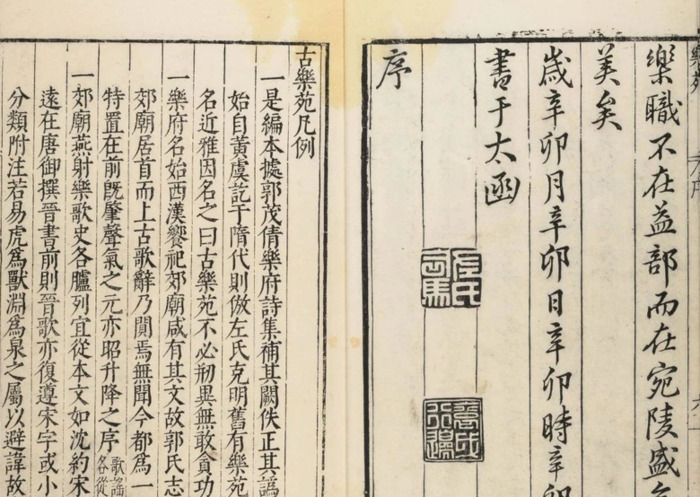 樂職不在益部而在宛陵盛
美矣
歲辛卯月辛卯日辛卯時辛卯
書于太函
序
古樂苑凡例
一是編本據郭茂倩樂府詩集補其闕佚正其譌
始自黃虞訖于隋代則倣左氏克明舊有樂苑
名近雅因名之曰古樂苑不必刱異無敢貪功
一樂府名始西漢饗祀郊廟咸有其文故郭氏志
郊廟居首而上古歌辭乃闃焉無聞今都爲一
特置在前旣肇聲氣之元亦昭升降之序歌謠各從
一郊廟燕射樂歌史各臚列宜從本文如沈約宋
遠在唐御撰晉書前則晉歌亦復遵宋字或小
分類附注若易虎爲獸淵爲泉之屬以避諱故